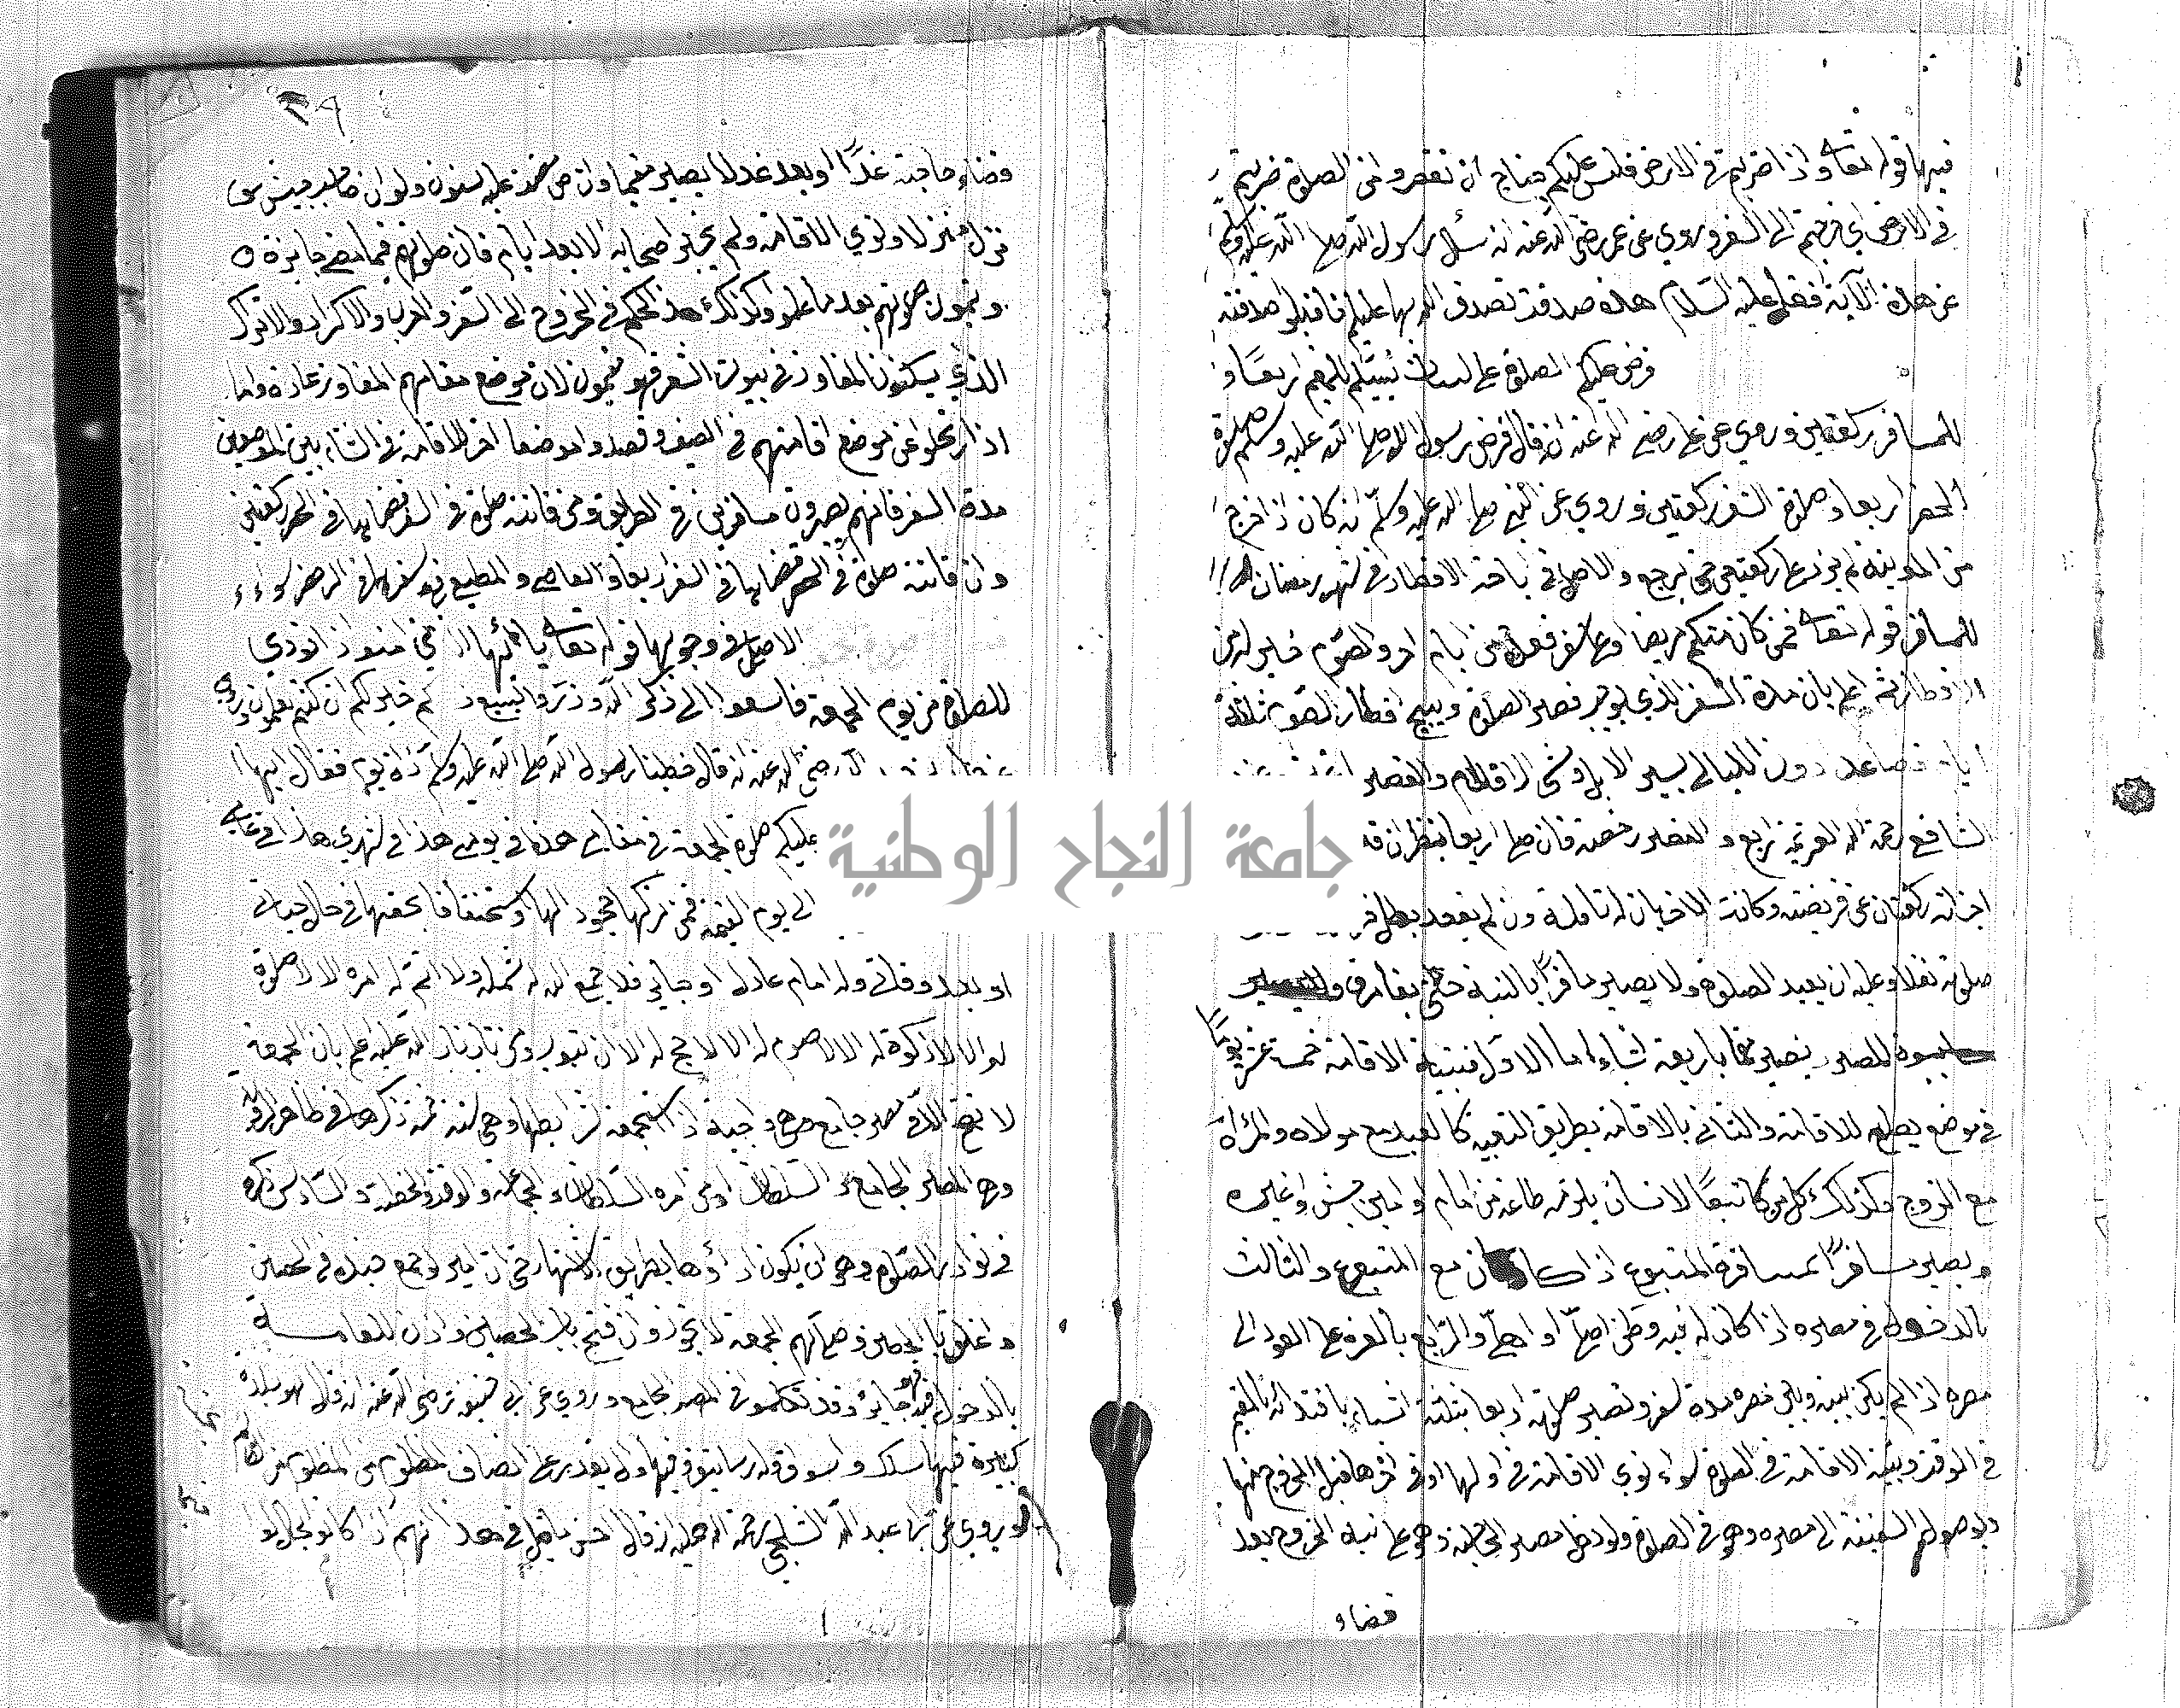 فيها قوله تعالى واذا ضربتم في الارض فليس عليكم جناح ان تقصروا من الصلوة ضربتم
في الارض اي خرجتم الى السفر وروي عن عمر رضي الله عنه انه سئل رسول الله صلى الله عليه وسلم
عن هذه الآية فقال عليه السلام هذه صدقة تصدق الله بها عليكم فاقبلوا صدقته
فرض عليكم الصلوة على لسان نبيكم للمقيم اربعا و
للمسافر ركعتين وروي عن علي رضي الله عنه انه قال فرض رسول الله صلى الله عليه وسلم صلوة
الحضر اربعا وصلوة السفر ركعتين وروي عن النبي صلى الله عليه وسلم انه كان اذا خرج
من المدينة لم يزد على ركعتين حتى يرجع والاصل في اباحة الافطار في شهر رمضان
للمسافر قوله تعالى فمن كان منكم مريضا او على سفر فعدة من ايام اخر والصوم خير له من
الافطار ثم اعلم بان مدة السفر الذي يوجب قصر الصلوة ويبيح افطار الصوم ثلاثة
ايام فصاعدا دون الليالي بسير الابل ومشي الاقدام والقصر
الشافعي رحمه الله العزيمة اربع والقصر رخصة فان صلى اربعا ينظر ان قعد
اجزأته ركعتان عن فريضته وكانت الاخريان له نافلة وان لم يقعد بطل
صلوته نفلا وعليه ان يعيد الصلوة ولا يصير مسافرا بالنية حتى يفارق
المصر ويصير مقيما باربعة اشياء اما الاول فبنية الاقامة خمسة عشر يوما
في موضع يصلح للاقامة والثاني بالاقامة بطريق التبعية كالعبد مع مولاه والمرأة
مع الزوج وكذلك كل من كان تبعا لانسان يلزمه طاعته من امام او امير جيش او غيره
ويصير مسافرا بمسافرة المتبوع اذا كان مع المتبوع والثالث
بالدخول في مصره اذا كان له فيه وطن اصلي او اهلي والرابع بالعزم على العود الى
مصره اذا لم يكن بينه وبين مصره مدة سفر وتصير صلوته اربعا بثلثة اشياء باقتدائه بالمقيم
في الوقت وبنية الاقامة في الصلوة سواء نوى الاقامة في اولها او في اخرها قبل الخروج منها
وبوصول السفينة الى مصره وهو في الصلوة ولو دخل مصرا لحاجة وهو على نية الخروج بعد
قضاء
٣٩
قضاء حاجته غدا او بعد غد لا يصير مقيما وان مضت عليه سنون ولو ان خليفة
نزل منزلا ونوى الاقامة ولم يخبر اصحابه الا بعد ايام فان صلوتهم فيما مضى جايزة
ويتمون صلوتهم بعد ما علموا وكذلك هذا الحكم في الخروج الى السفر والعرب والاكراد والاتراك
الذين يسكنون المفاوز في بيوت الشعر فهم مقيمون لان موضع مقامهم المفاوز عادة واما
اذا ارتحلوا عن موضع اقامتهم في الصيف وقصدوا موضعا اخر للاقامة في الشتاء بين الموضعين
مدة السفر فانهم يصيرون مسافرين في الطريق ومن فاتته صلوة في السفر قضاها في الحضر ركعتين
وان فاتته صلوة في الحضر قضاها في السفر اربعا والعاصي والمطيع في سفرهما في الرخص سواء
الاصل في وجوبها قوله تعالى يا ايها الذين امنوا اذا نودي
للصلوة من يوم الجمعة فاسعوا الى ذكر الله وذروا البيع ذلكم خير لكم ان كنتم تعلمون وروي
رضي الله عنه انه قال خطبنا رسول الله صلى الله عليه وسلم ذات يوم فقال ايها
عليكم صلوة الجمعة في مقامي هذا في يومي هذا في شهري هذا في عامي
الى يوم القيمة فمن تركها جحودا لها او استخفافا بحقها في حال حياتي
او بعد وفاتي وله امام عادل او جائر فلا جمع الله له شمله ولا اتم له امره الا لا صلوة
له الا لا زكوة له الا لا صوم له الا لا حج له الا ان يتوب ومن تاب تاب الله عليه اعلم بان الجمعة
لا تصح الا في مصر جامع وهي واجبة اذا استجمعت شرايطها وهي ستة خمسة ذكرها في ظاهر الرواية
وهي المصر الجامع والسلطان او من امره السلطان والجماعة والوقت والخطبة والسادس ذكره
في نوادر الصلوة وهو ان يكون اداؤها بطريق الاشتهار حتى ان اميرا لو جمع جنده في الحصن
واغلق باب الحصن وصلى بهم الجمعة لا يجوز وان فتح باب الحصن واذن للعامة
بالدخول فيه جايز وقد تكلموا في المصر الجامع وروي عن ابي حنيفة رضي الله عنه انه قال هو بلدة
كبيرة فيها سكك واسواق ولها رساتيق وفيها وال يقدر على انصاف المظلوم من الظالم
وروي عن ابي عبد الله الثلجي رحمه الله انه قال احسن ما قيل في هذا انهم اذا كانوا بحال لو
جامعة النجاح الوطنية